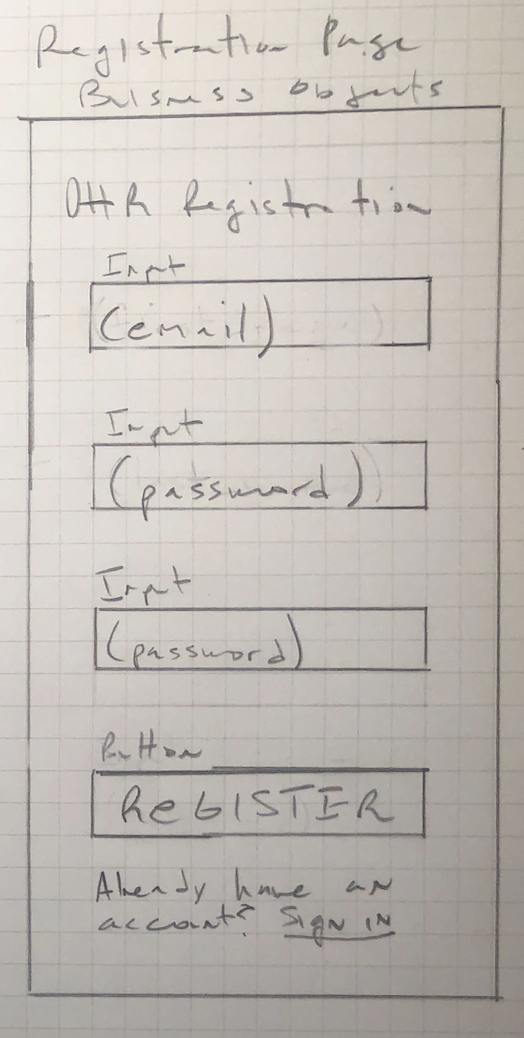 Registration Page
Buisness Objects
OHR Registration
Input
(email)
Input
(password)
Input
(password)
Button
REGISTER
Already have an
account? Sign in